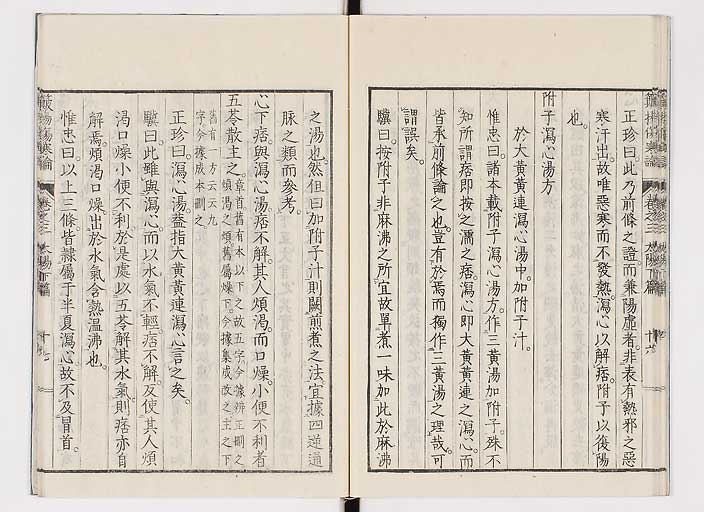 正珍曰此乃前條之證而兼陽虛者非表有熱邪之惡
寒汗出故唯惡寒而不發熱瀉心以解痞附子以復陽
也
附子瀉心湯方
於大黃黃連瀉心湯中加附子汁
惟忠曰諸本載附子瀉心湯方作三黃湯加附子殊不
知所謂痞即按之濡之痞瀉心即大黃黃連之瀉心而
皆承前條論之也豈有於焉而獨作三黃湯之理哉可
謂誤矣
驥曰按附子非麻沸之所宜故單煮一味加此於麻沸
之湯也然但曰加附子汁則闕煎煮之法宜據四逆通
脉之類而參考
心下痞與瀉心湯痞不解其人煩渴而口燥小便不利者
五苓散主之
章首舊有本以下之故五字今據辨正刪之
煩渴之煩舊屬燥下今據集成改之主之下
舊有一方云云九
字今據成本刪之
正珍曰瀉心湯蓋指大黃黃連瀉心言之矣
驥曰此雖與瀉心而以水氣不輕痞不解及使其人煩
渴口燥小便不利於是處以五苓解其水氣則痞亦自
解焉煩渴口燥出於水氣含熱溫沸也
惟忠曰以上三條皆隸屬于半夏瀉心故不及冒首